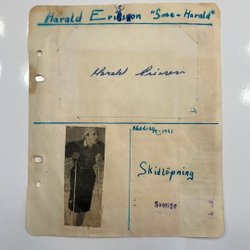 Harald Ericsson "Sme-Harald"
Harald Ericson
Skidlöpning
Sverige